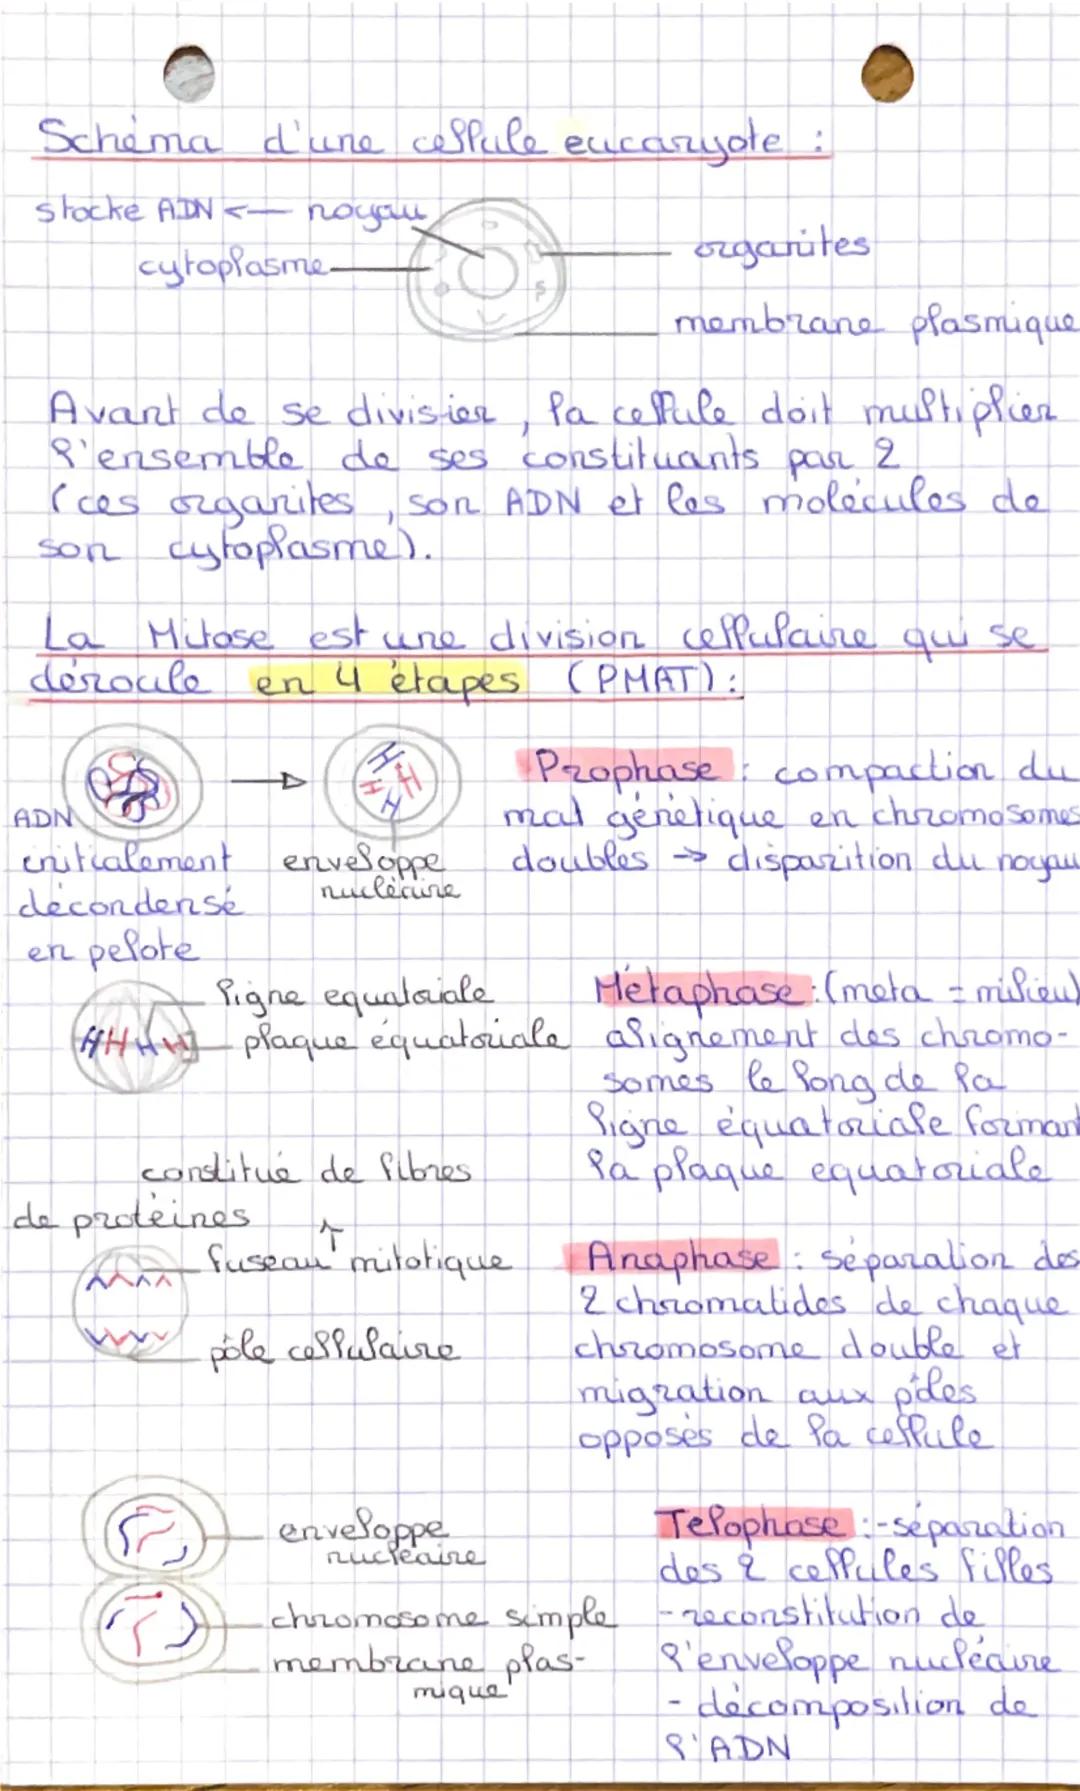 Schéma d'une cellule eucaryote :
stocke ADN <— noyau
cytoplasme
organites
membrane plasmique
Avant de se divisier, la cellule doit multiplier
l'ensemble de ses constituants par 2
(ces organites, son ADN et les molécules de
son cytoplasme).
La Mitose est une division cellulaire qui se
déroule en 4 étapes (PMAT) :
Prophase : compaction du
mat génétique en chromosomes
doubles -> disparition du noyau
ADN
initialement
décondensé
en pelote
enveloppe
nucléaire
ligne equatoriale
plaque équatoriale
Métaphase : (meta = milieu)
alignement des chromo-
somes le long de la
ligne équatoriale formant
la plaque equatoriale
constitué de fibres
de protéines
↑
fuseau mitotique
pôle cellulaire
Anaphase : séparation des
2 chromatides de chaque
chromosome double et
migration aux pôles
opposés de la cellule
enveloppe
nucléaire
chromosome simple
membrane plas-
mique
Telophase : - séparation
des 2 cellules filles
- reconstitution de
l'enveloppe nucléaire
- décomposition de
l'ADN